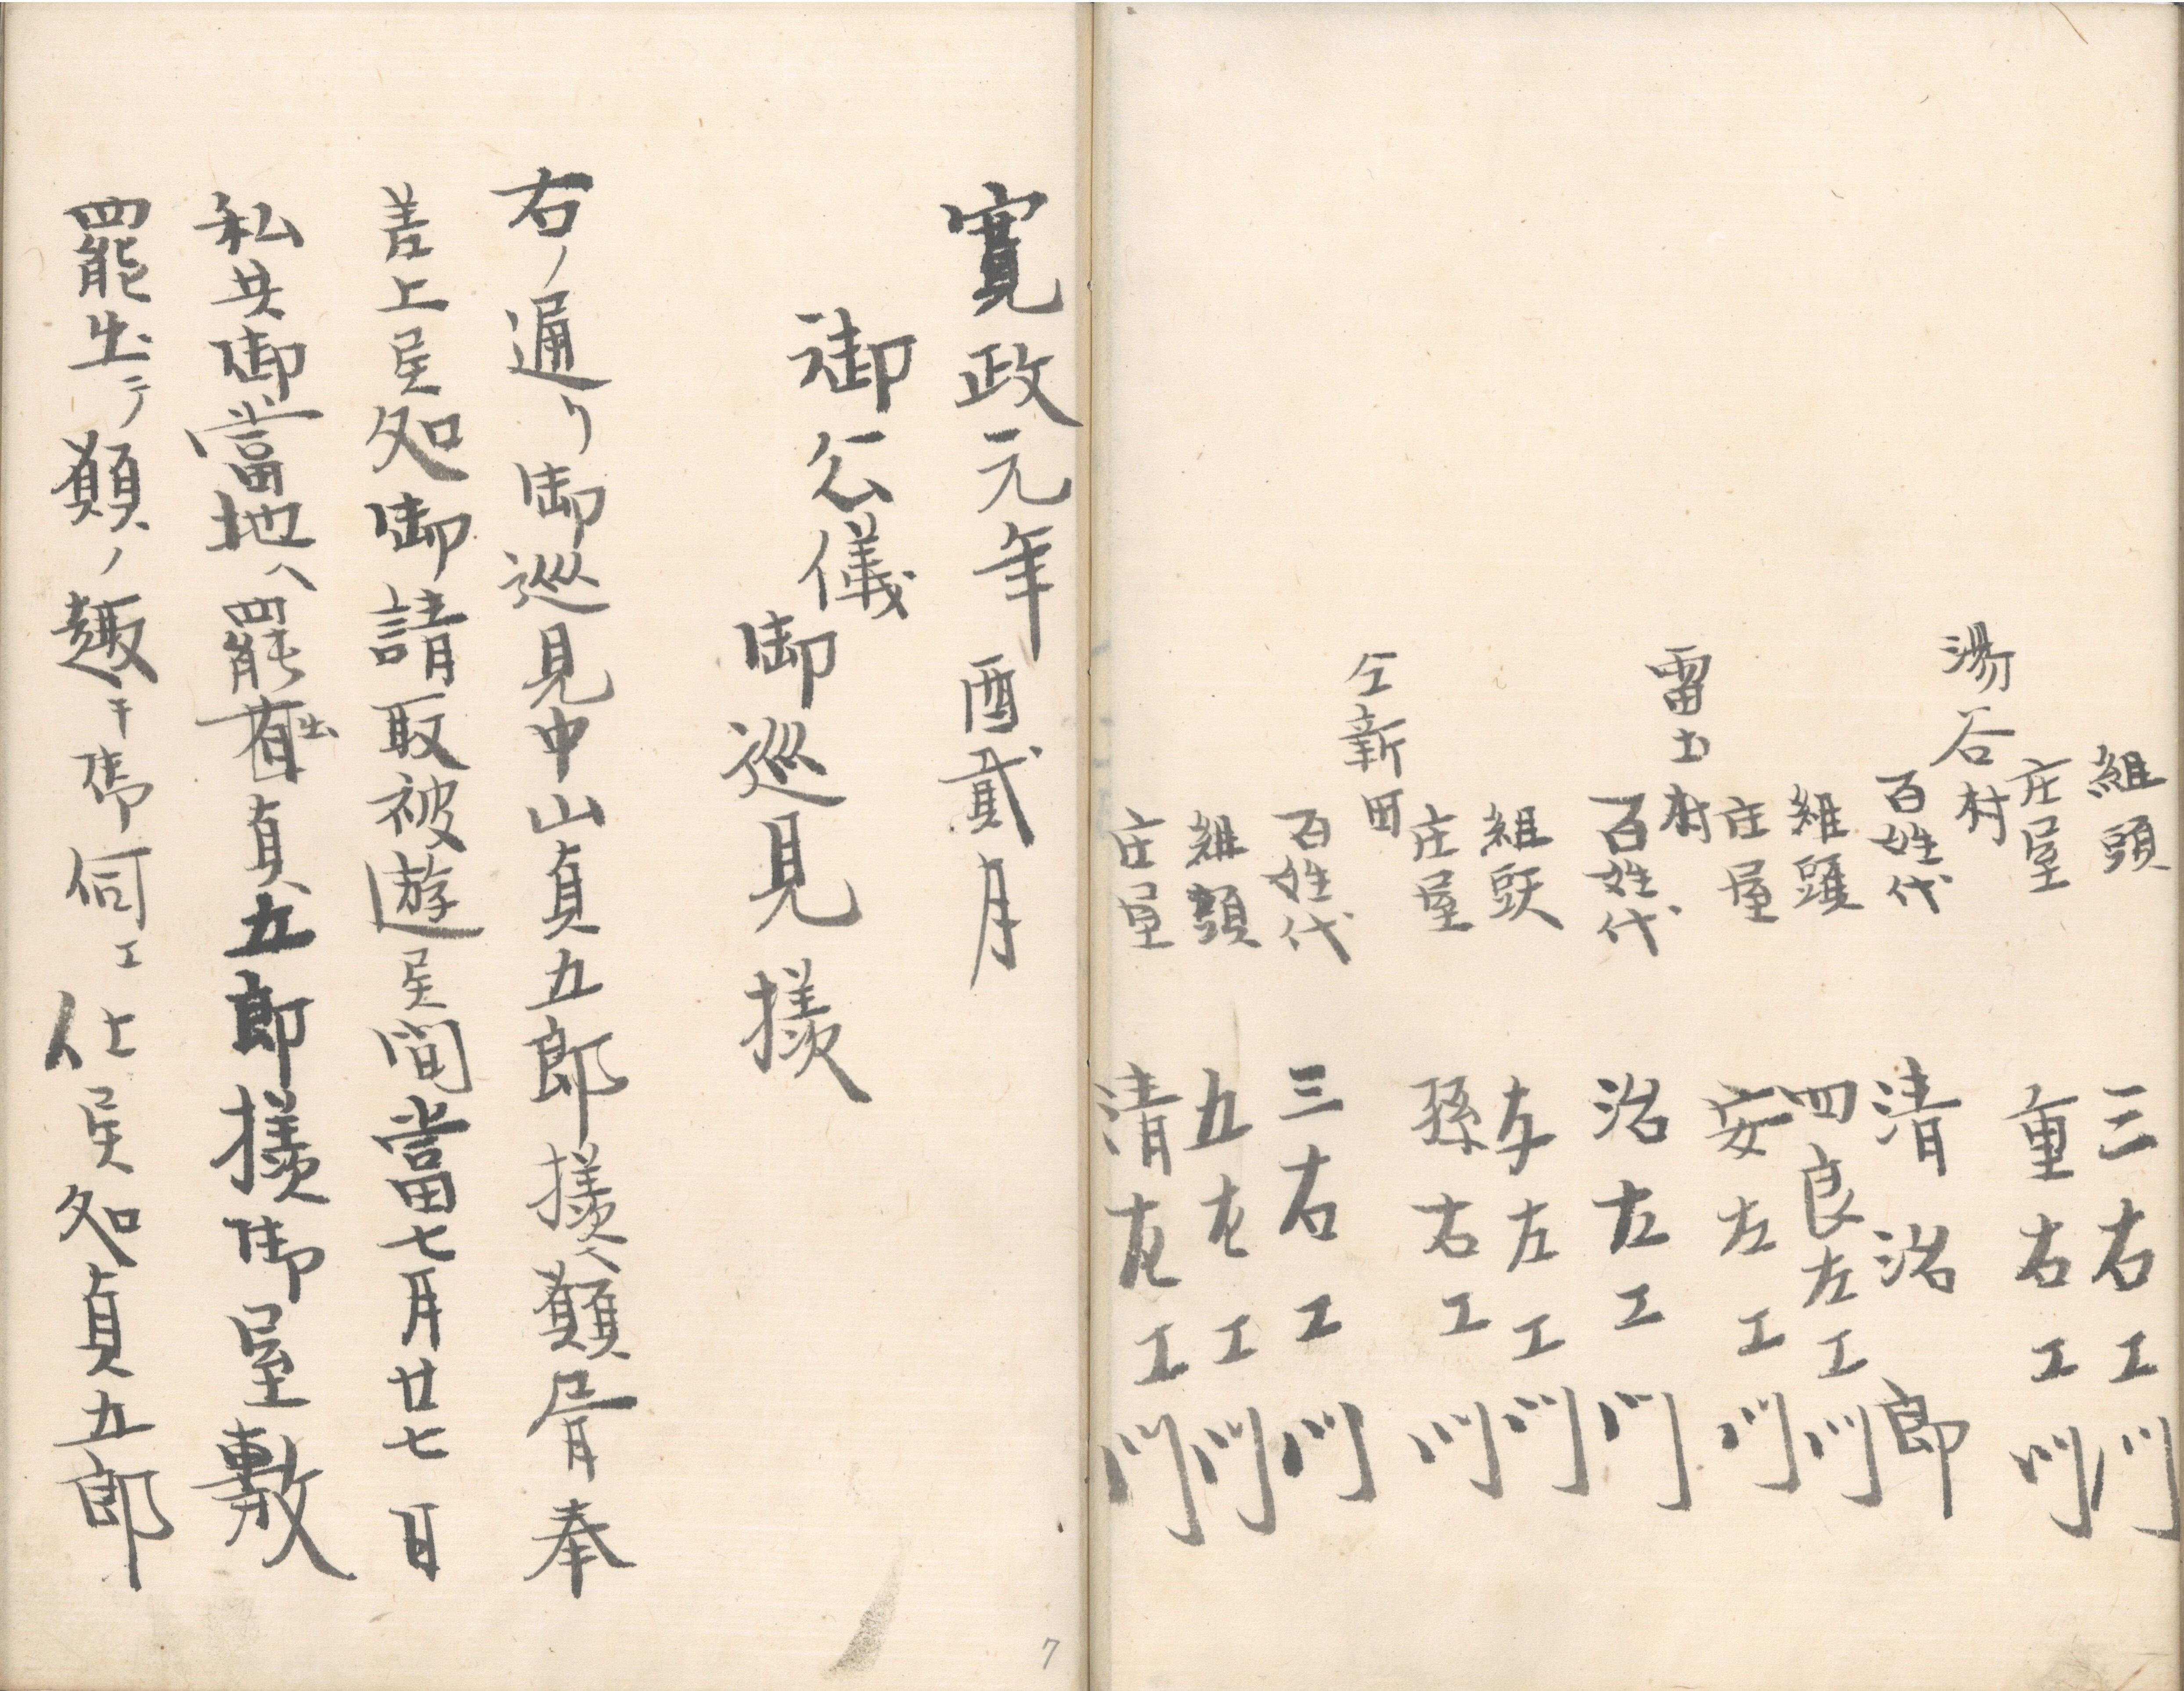 組頭 三右エ門
庄屋 重右エ門
湯谷村
百姓代 清治郎
組頭 四良左エ門
庄屋 安左エ門
雷土村
百姓代 治左エ門
組頭 与左エ門
庄屋 孫右エ門
仝新田
百姓代 三右エ門
組頭 五左エ門
庄屋 清左エ門
寛政元年酉貳月
御公儀
御巡見様
右ノ通り御巡見中山貞五郎様ヘ願届奉
差上候処御請取被遊候間當七月廿七日
私共御當地ヘ罷出貞五郎様御屋敷
罷出テ願ノ趣キ御伺エ仕候処貞五郎
7